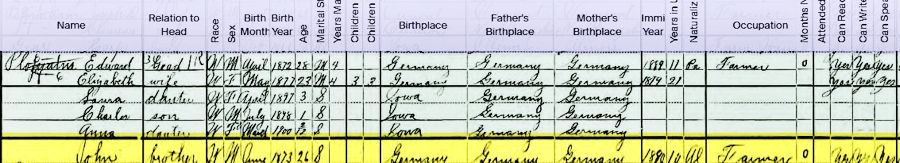 Name Relation to Head Race Sex Birth Month Birth Year Age Marital S Years Ma Children Children Birthplace Father's Birthplace Mother's Birthplace Immi Year Years in U Naturaliz Occupation Months N Attended Can Read Can Wri Can Spe
Edward Head W M April 1872 28 M 4 Germany Germany Germany 1889 11 Pa Farmer 0 Yes Yes Yes
Elizabeth wife W F May 1877 23 M 4 3 2 Germany Germany Germany 1879 21 Yes Yes Yes
Laura dauter W F April 1897 3 S Iowa Germany Germany
Charles son W M July 1898 1 S Iowa Germany Germany
Anna dauter W F 1900 S Iowa Germany Germany
John brother W M June 1873 26 S Germany Germany Germany 1890 10 Al Farmer 0 Yes Yes Yes